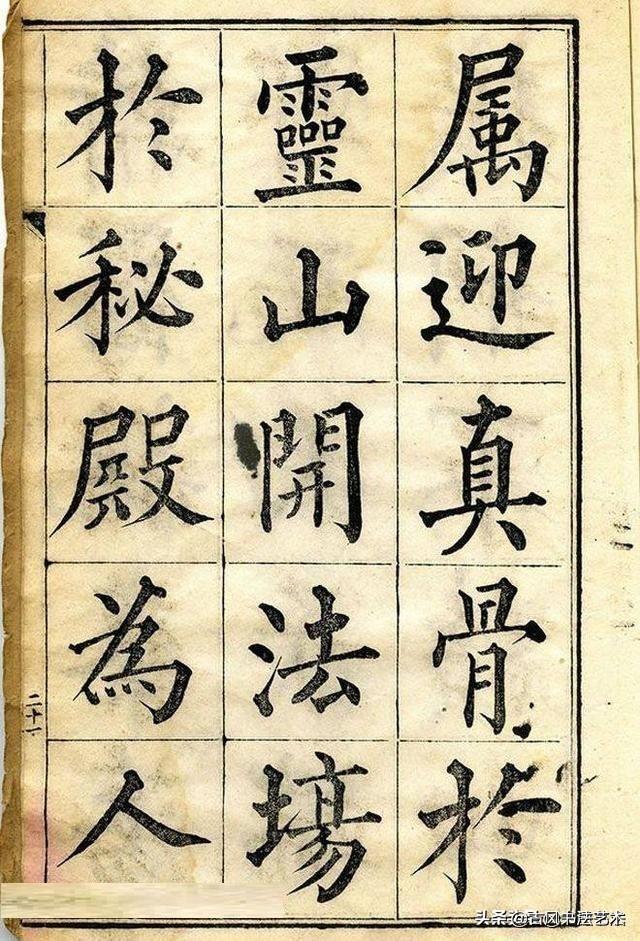 属迎真骨於
靈山開法場
於秘殿為人
二十一
头条@古风书法艺术